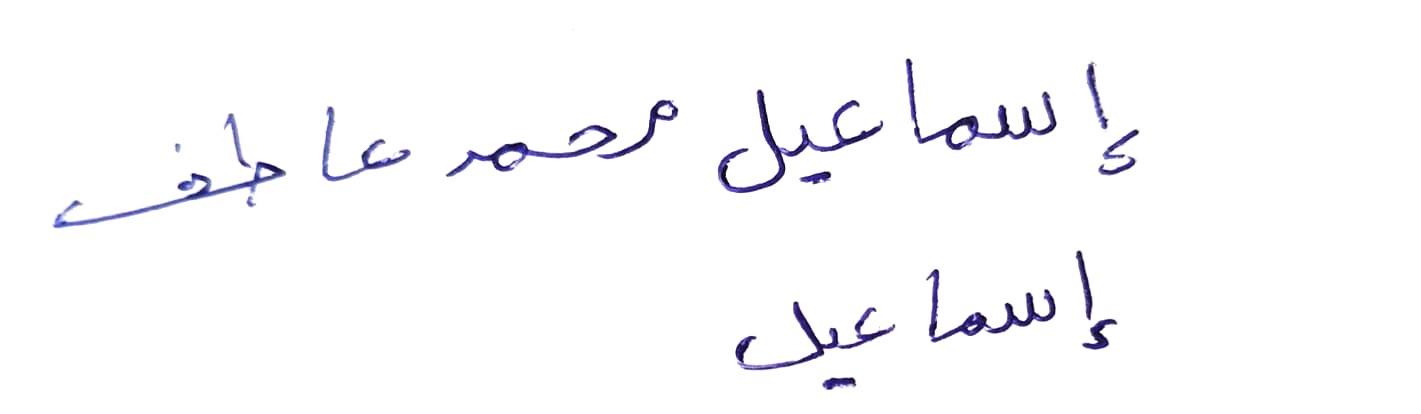 إسماعيل محمد عاطف
إسماعيل